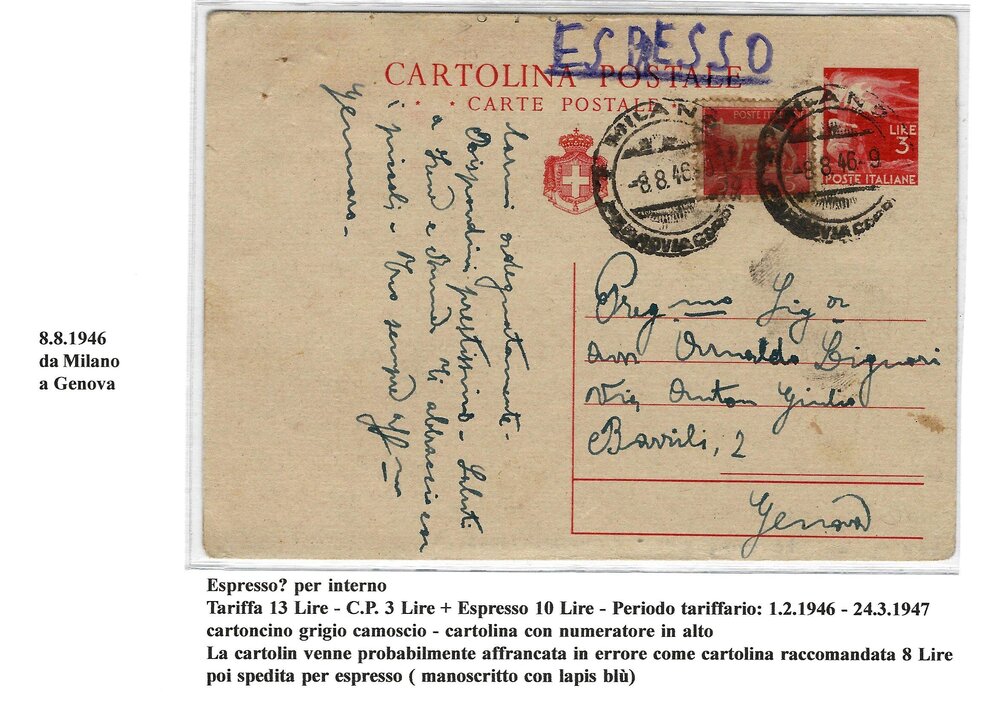 ESPRESSO
CARTOLINA POSTALE
CARTE POSTALE
POSTE ITALIANE
LIRE
3
POSTE ITALIANE
MILANO
-8.8.46.-9
MILANO
-8.8.46.-9
Preg.mo Sig or
avv Arnaldo
Via Anton Giulio
Barrili, 2
Genova
Rispondimi prestissimo - Saluti
Ti abbraccio con
i piccoli - tuo sempre aff.mo
Gennaro -
8.8.1946
da Milano
a Genova
Espresso? per interno
Tariffa 13 Lire - C.P. 3 Lire + Espresso 10 Lire - Periodo tariffario: 1.2.1946 - 24.3.1947
cartoncino grigio camoscio - cartolina con numeratore in alto
La cartolin venne probabilmente affrancata in errore come cartolina raccomandata 8 Lire
poi spedita per espresso ( manoscritto con lapis blù)